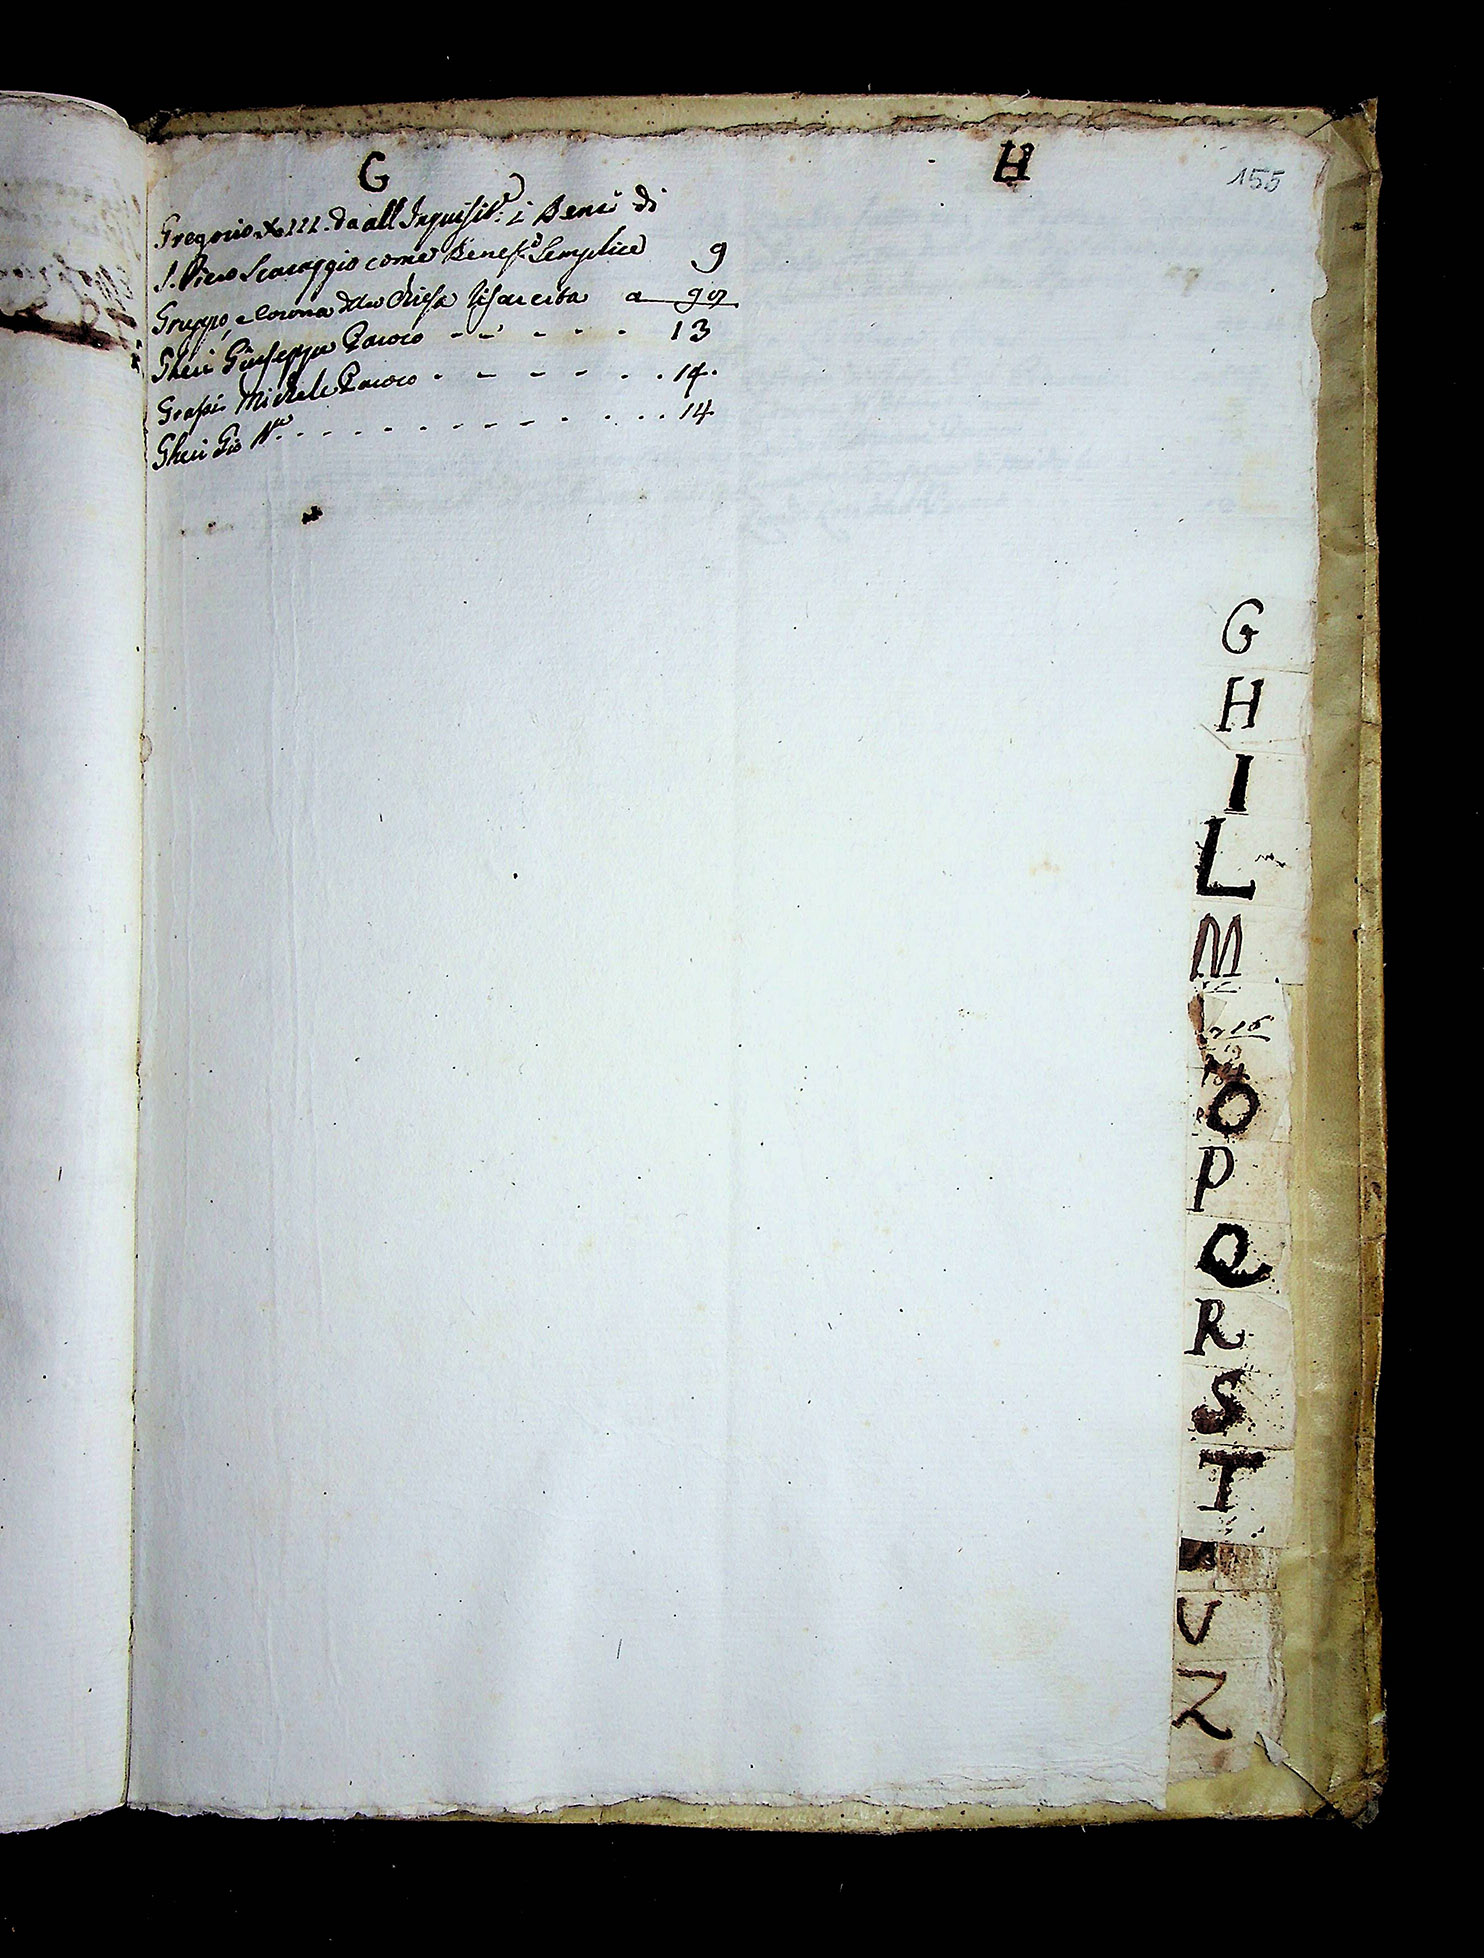 G
H
155
Gregorio XIII. da all Inquisit.e i Beni di
S. Piero Scaraggio come Benef.o Semplice 9
Gruppo, e Corona della Chiesa risarcita a 90
Gheri Giuseppe Paroco - - - - - - 13
Grassi Michele Paroco - - - - - - 14.
Gheri Gio - - - - - - - - - - 14
G
H
I
L
M
O
P
Q
R
S
T
V
Z